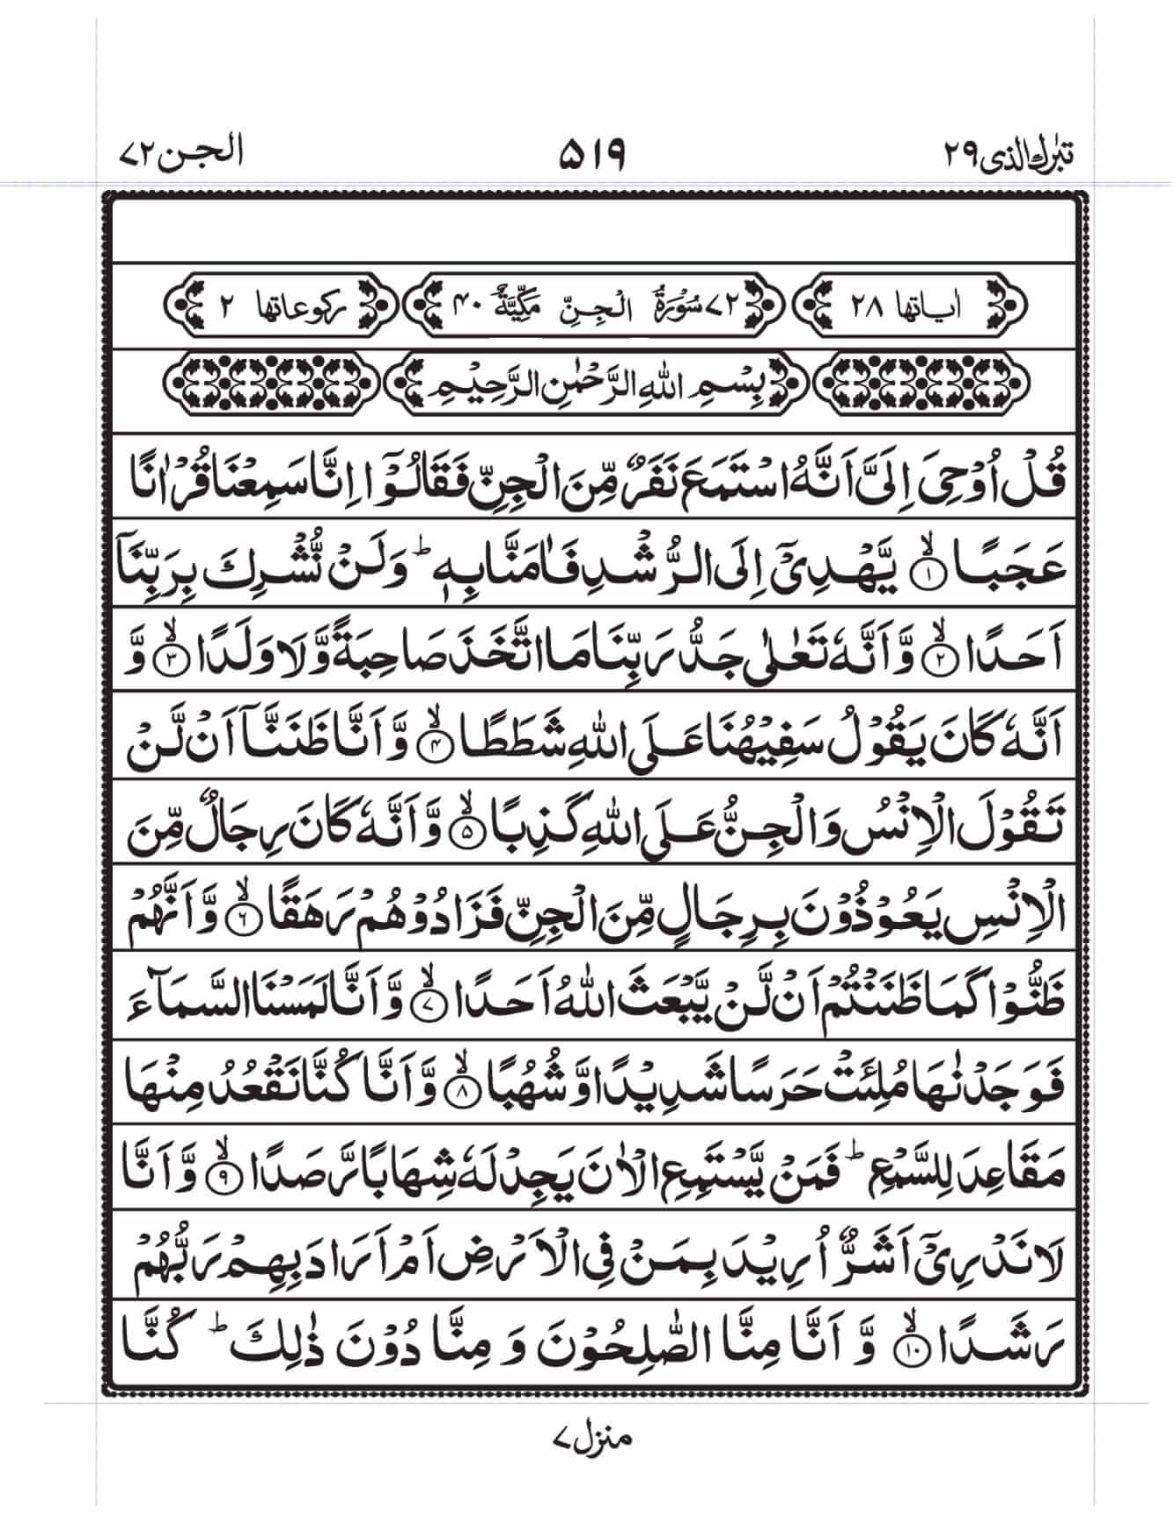 تبٰرك الذی ۲۹
۵۱۹
الجن ۷۲
اٰیاتها ۲۸
۷۲ سُوْرَةُ الْجِنِّ مَكِّيَّةٌ ۴۰
ركوعاتها ۲
بِسْمِ اللّٰهِ الرَّحْمٰنِ الرَّحِيْمِ
قُلْ اُوْحِيَ اِلَيَّ اَنَّهُ اسْتَمَعَ نَفَرٌ مِّنَ الْجِنِّ فَقَالُوْٓا اِنَّا سَمِعْنَا قُرْاٰنًا
عَجَبًا ۙ‏﴿۱﴾ يَّهْدِيْٓ اِلَى الرُّشْدِ فَاٰمَنَّا بِهٖ ؕ وَلَنْ نُّشْرِكَ بِرَبِّنَآ
اَحَدًا ۙ‏﴿۲﴾ وَّاَنَّهٗ تَعٰلٰى جَدُّ رَبِّنَا مَا اتَّخَذَ صَاحِبَةً وَّلَا وَلَدًا ۙ‏﴿۳﴾ وَّ
اَنَّهٗ كَانَ يَقُوْلُ سَفِيْهُنَا عَلَى اللّٰهِ شَطَطًا ۙ‏﴿۴﴾ وَّاَنَّا ظَنَنَّآ اَنْ لَّنْ
تَقُوْلَ الْاِنْسُ وَالْجِنُّ عَلَى اللّٰهِ كَذِبًا ۙ‏﴿۵﴾ وَّاَنَّهٗ كَانَ رِجَالٌ مِّنَ
الْاِنْسِ يَعُوْذُوْنَ بِرِجَالٍ مِّنَ الْجِنِّ فَزَادُوْهُمْ رَهَقًا ۙ‏﴿۶﴾ وَّاَنَّهُمْ
ظَنُّوْا كَمَا ظَنَنْتُمْ اَنْ لَّنْ يَّبْعَثَ اللّٰهُ اَحَدًا ۙ‏﴿۷﴾ وَّاَنَّا لَمَسْنَا السَّمَآءَ
فَوَجَدْنٰهَا مُلِئَتْ حَرَسًا شَدِيْدًا وَّشُهُبًا ۙ‏﴿۸﴾ وَّاَنَّا كُنَّا نَقْعُدُ مِنْهَا
مَقَاعِدَ لِلسَّمْعِ ؕ فَمَنْ يَّسْتَمِعِ الْاٰنَ يَجِدْ لَهٗ شِهَابًا رَّصَدًا ۙ‏﴿۹﴾ وَّاَنَّا
لَا نَدْرِيْٓ اَشَرٌّ اُرِيْدَ بِمَنْ فِي الْاَرْضِ اَمْ اَرَادَ بِهِمْ رَبُّهُمْ
رَشَدًا ۙ‏﴿۱۰﴾ وَّاَنَّا مِنَّا الصّٰلِحُوْنَ وَمِنَّا دُوْنَ ذٰلِكَ ؕ كُنَّا
منزل ۷